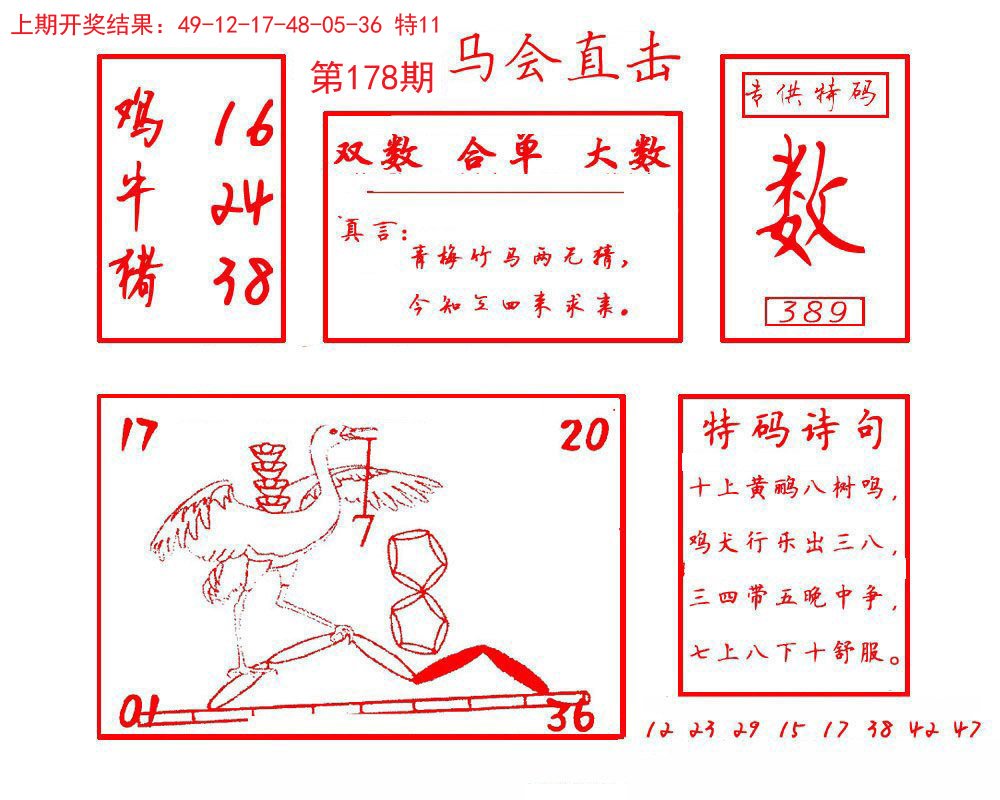 上期开奖结果：49-12-17-48-05-36 特11
第178期 马会直击
鸡 16
牛 24
猪 38
双数 合单 大数
真言：
青梅竹马两无猜，
今知三四来求亲。
专供特码
数
389
17
20
7
01
36
特码诗句
十上黄鹂八树鸣，
鸡犬行乐出三八，
三四带五晚中争，
七上八下十舒服。
12 23 29 15 17 38 42 47